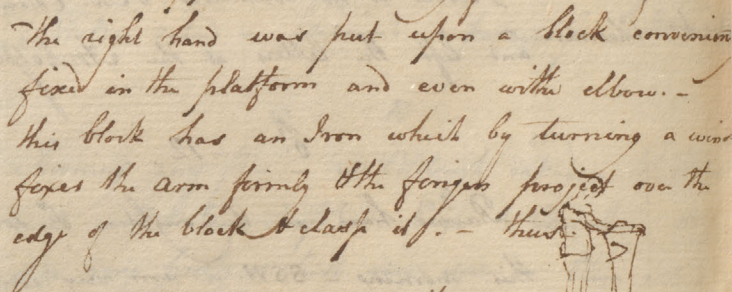 the right hand was put upon a block convenien
fixed in the platform and even withe elbow. -
this block has an Iron which by turning a win
fixes the arm firmly & the fingers project over the
edge of the block & clasp it. - thus